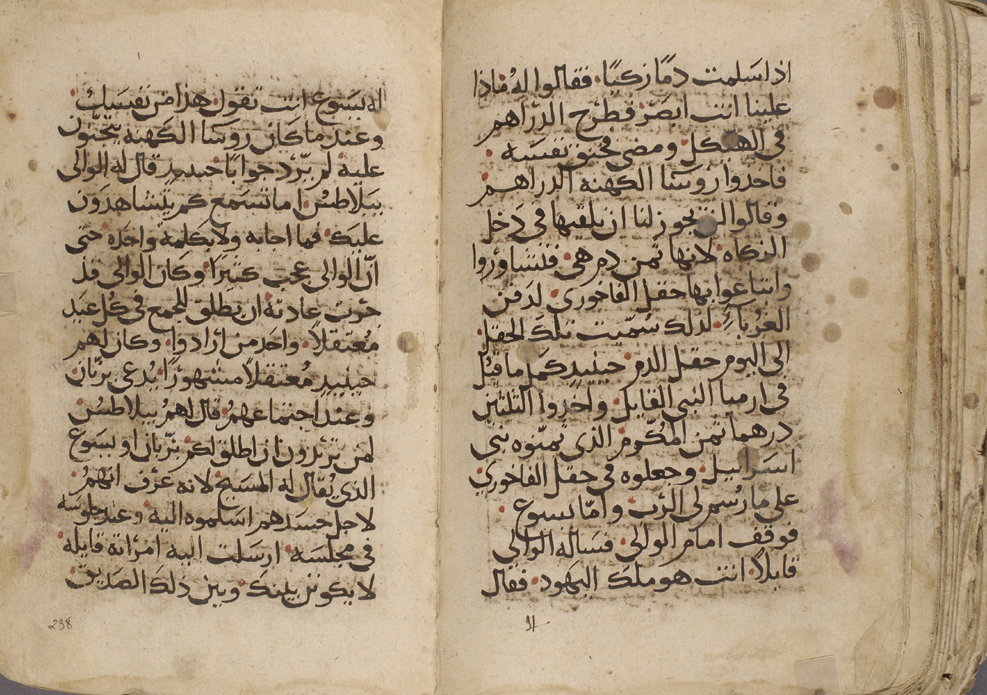 اذا سلمت دمًا زكيًا. فقالوا له ماذا
علينا انت ابصر. فطرح الدراهم
في الهيكل ومضى فخنق نفسه.
فاخذوا روسا الكهنة الدراهم
وقالوا لن يجوز لنا ان نلقيها في دخل
الزكاه لانها ثمن دم هي. فتشاوروا
وابتاعوا بها حقل الفاخوري لدفن
الغرباء. لذلك سميت تلك الحقل
الى اليوم حقل الدم. حينيدٍ كمل ما قيل
في ارميا النبي القايل. واخذوا الثلثين
درهما ثمن المكرم الذي ثمنوه بني
اسراييل. وجعلوه في حقل الفاخوري
على ما رسم لي الرب. وامّا يسوع
فوقف امام الوالي. فساله الوالي
قايلًا انت هو ملك اليهود. فقال
11
له يسوع انت تقول هذا من نفسك.
وعند ما كان روسا الكهنة يحتجون
عليه لم يرد جوابًا. حينيدٍ قال له الوالي
بيلاطس اما تسمع كم يتشاهدون
عليك. فما اجابه ولا بكلمة واحده حتى
انّ الوالي عجب كثيرًا. وكان الوالي قد
جرت عادته ان يطلق للجمع في كل عيد
معتقلًا. واحد من ارادوا. وكان لهم
حينيدٍ معتقلًا مشهورًا يُدعى برنان
وعند اجتماعهم قال لهم بيلاطس
لمن تريدون ان اطلق لكم برنان او يسوع
الذي يُقال له المسيح. لانه عرف انهم
لاجل حسدهم اسلموه اليه. وعند جلوسه
في مجلسه. ارسلت اليه امراته قايله
لا يكونن بينك وبين ذلك الصديق
238